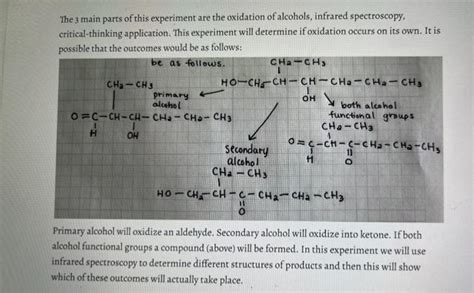 The 3 main parts of this experiment are the oxidation of alcohols, infrared spectroscopy,
critical-thinking application. This experiment will determine if oxidation occurs on its own. It is
possible that the outcomes would be as follows:
be as follows.
CH₂-CH₃
HO-CH₂-CH-CH-CH₂-CH₂-CH₃
OH
CH₂-CH₃
primary
alcohol
O=C-CH-CH-CH₂-CH₂-CH₃
H OH
both alcohol
functional groups
CH₂-CH₃
O=C-CH-C-CH₂-CH₂-CH₃
H O
Secondary
alcohol
CH₂-CH₃
HO-CH₂-CH-C-CH₂-CH₂-CH₃
O
Primary alcohol will oxidize an aldehyde. Secondary alcohol will oxidize into ketone. If both
alcohol functional groups a compound (above) will be formed. In this experiment we will use
infrared spectroscopy to determine different structures of products and then this will show
which of these outcomes will actually take place.